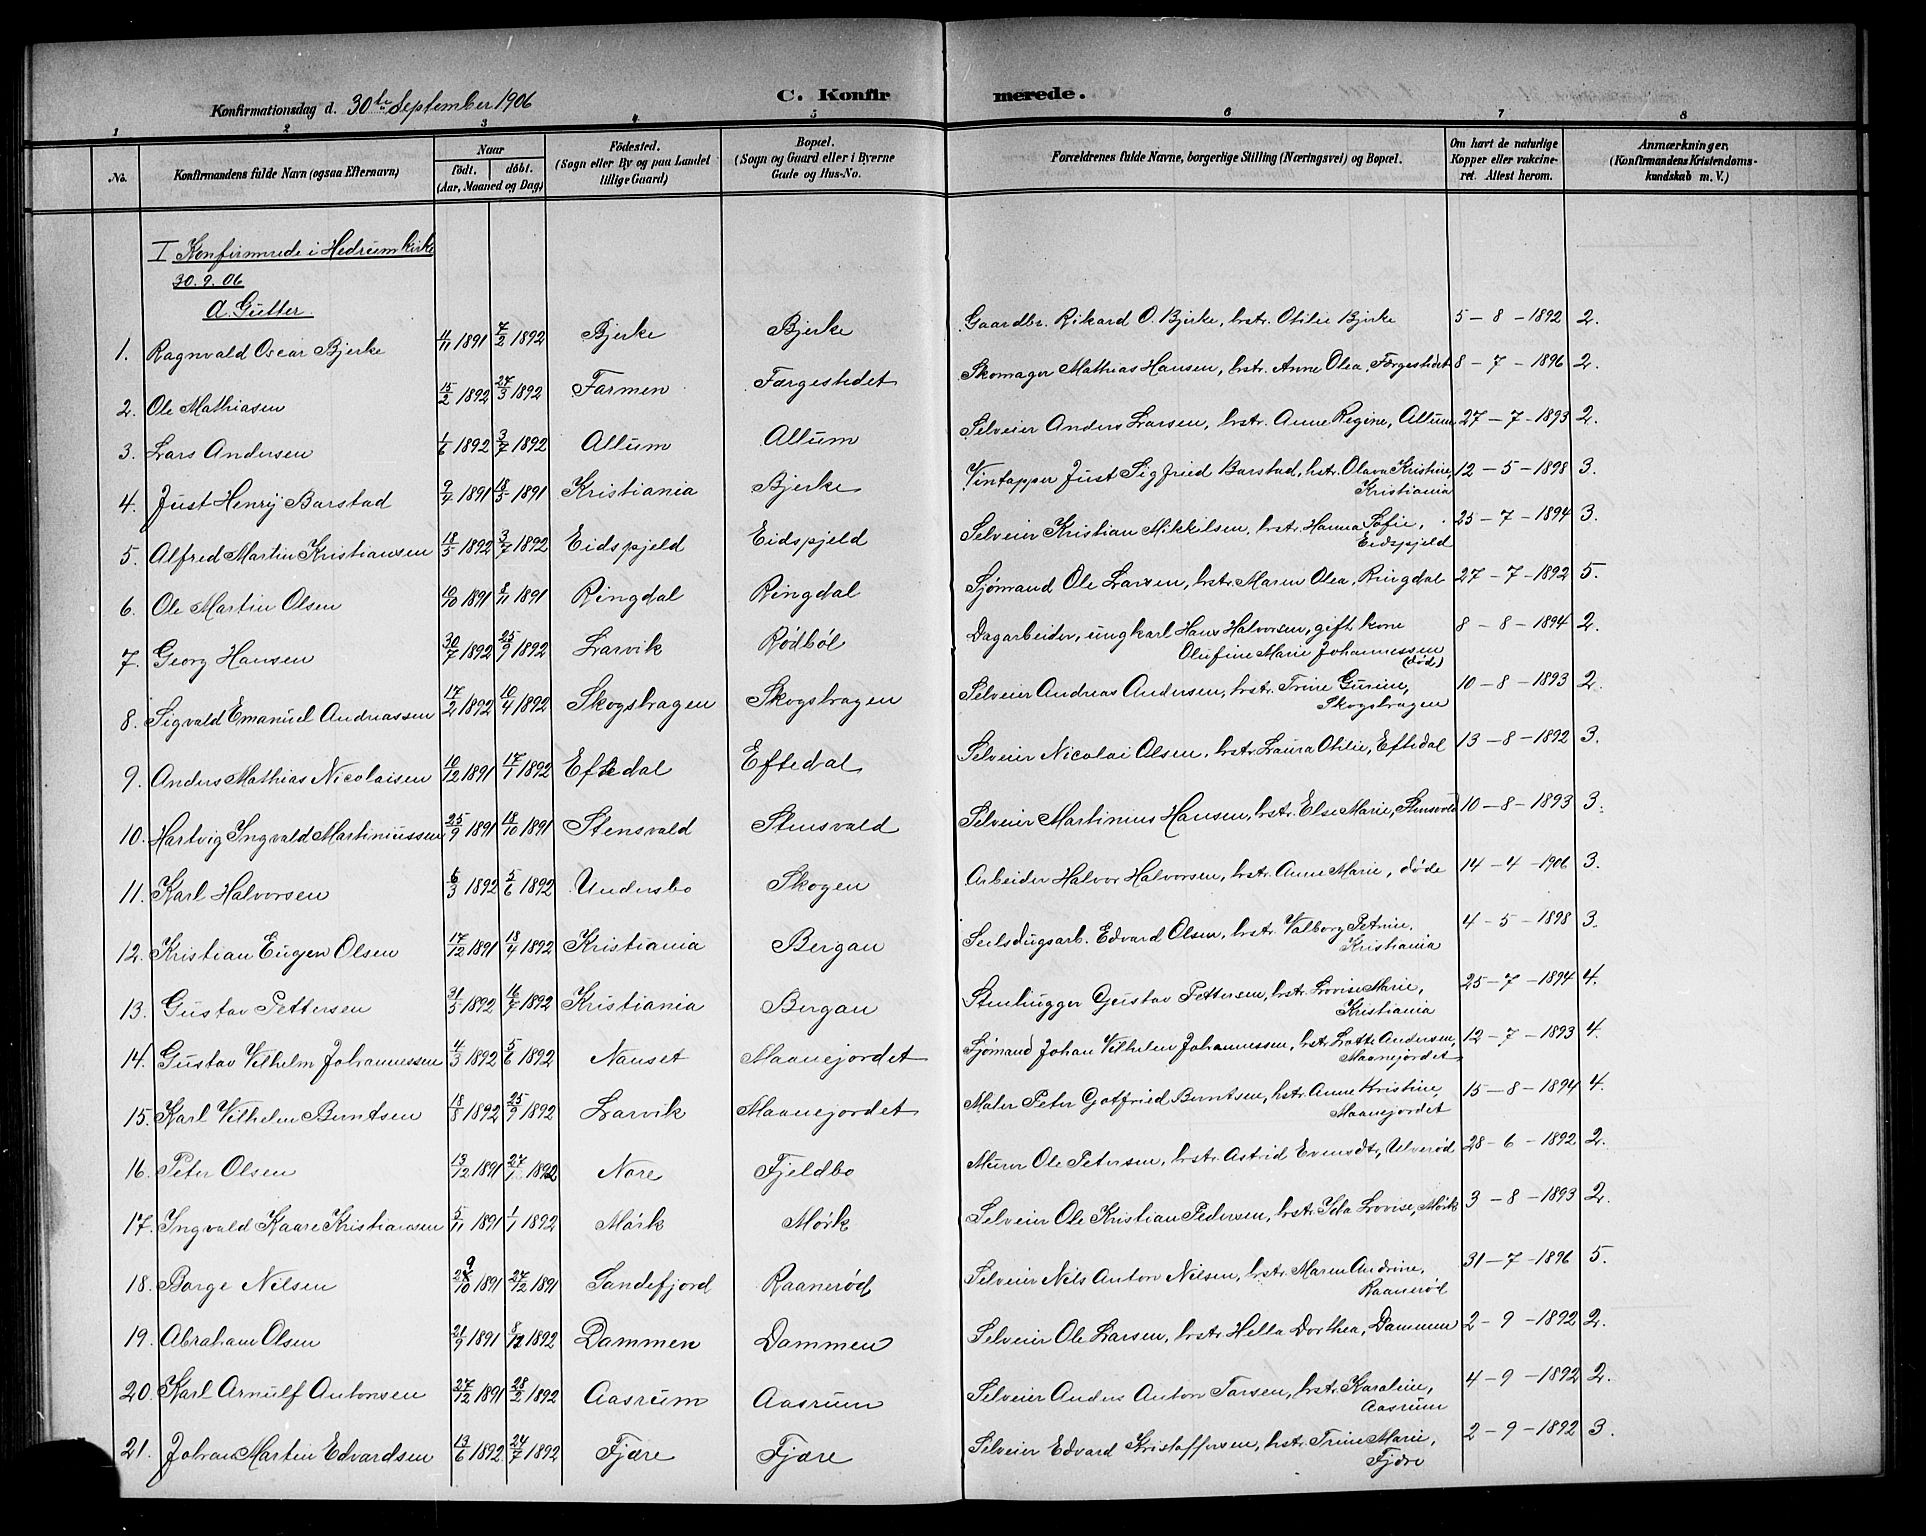 Konfirmationsdag d. 30te September 1906
C. Konfirmerede.
1 2 3 4 5 6 7 8
No. Konfirmandens fulde Navn (ogsaa Efternavn) Naar født. døbt. (Aar, Maaned og Dag) Fødested. (Sogn eller By og paa Landet tillige Gaard) Bopæl. (Sogn og Gaard eller i Byerne Gade og Hus-No. Forældrenes fulde Navne, borgerlige Stilling (Næringsvei) og Bopæl. Om havt de naturlige Kopper eller vakcineret. Attest herom. Anmærkninger. (Konfirmandens Kristendomskundskab m. V.)
I Konfirmerede i Hedrum kirke
30.9.06
a. Gutter.
1. Ragnvald Oscar Bjerke 4/11 1891 7/2 1892 Bjerke Bjerke Gaardbr. Rikard O. Bjerke, hstr. Otilie Bjerke 5-8-1892 2.
2. Ole Mathiasen 15/2 1892 27/3 1892 Farmen Færgestedet Skomager Mathias Hansen, hstr. Anne Olea, Færgestedet 8-7-1896 2.
3. Lars Andersen 1/6 1892 3/7 1892 Allum Allum Selveier Anders Larsen, hstr. Anne Regine, Allum 27-7-1893 2.
4. Just Henry Barstad 9/4 1891 18/5 1891 Kristiania Bjerke Vintapper Just Sigfried Barstad, hstr. Olava Kristine, Kristiania 12-5-1898 3.
5. Alfred Martin Kristiansen 18/5 1892 3/7 1892 Eidspjeld Eidspjeld Selveier Kristian Mikkelsen, hstr. Hanna Sofie, Eidspjeld 25-7-1894 3.
6. Ole Martin Olsen 10/10 1891 8/11 1891 Ringdal Ringdal Sjømand Ole Larsen, hstr. Maren Olea, Ringdal 27-7-1892 5.
7. Georg Hansen 30/7 1892 25/9 1892 Larvik Rødbøl Dagarbeider, ungkarl Hans Halvorsen, gift kone Olufine Marie Johannessen (død) 8-8-1894 2.
8. Sigvald Emanuel Andreassen 17/2 1892 10/4 1892 Skogshagen Skogshagen Selveier Andreas Andersen, hstr. Trine Gurine, Skogshagen 10-8-1893 2.
9. Anders Mathias Nicolaisen 10/12 1891 17/1 1892 Eftedal Eftedal Selveier Nicolai Olsen, hstr. Laura Otilie, Eftedal 13-8-1892 3.
10. Hartvig Ingvald Martiniussen 25/9 1891 18/10 1891 Stensvald Stensvald Selveier Martinius Hansen, hstr. Else Marie, Stensvold 10-8-1893 3.
11. Karl Halvorsen 6/3 1892 5/6 1892 Undersbo Skogen Arbeider Halvor Halvorsen, hstr. Anne Marie, døde 14-4-1906 3.
12. Kristian Eugen Olsen 17/12 1891 18/4 1892 Kristiania Bergan Seilsdugsarb. Edvard Olsen, hstr. Valborg Petrine, Kristiania 4-5-1898 3.
13. Gustav Pettersen 31/5 1892 16/7 1892 Kristiania Bergan Stenhugger Gustav Pettersen, hstr. Lovise Marie, Kristiania 25-7-1894 4.
14. Gustav Vilhelm Johannessen 4/3 1892 5/6 1892 Nanset Maanejordet Sjømand Johan Vilhelm Johannessen, hstr. Lotte Andersen, Maanejordet 12-7-1893 4.
15. Karl Vilhelm Berntsen 18/8 1892 25/9 1892 Larvik Maanejordet Maler Peter Gotfried Berntsen, hstr. Anne Kristine, Maanejordet 15-8-1894 4.
16. Peter Olsen 13/12 1891 27/7 1892 Nore Fjeldbo Murer Ole Petersen, hstr. Astrid Evensdtr, Ulverød 28-6-1892 2.
17. Ingvald Kaare Kristiansen 5/11 1891 1/1 1892 Mørk Mørk Selveier Ole Kristian Pedersen, hstr. Ida Lovise, Mørk 3-8-1893 2.
18. Borge Nilsen 1891 27/12 1891 Sandefjord Raanerød Selveier Nils Anton Nilsen, hstr. Maren Andrine, Raanerød 31-7-1896 5.
19. Abraham Olsen 21/9 1891 8/12 1892 Dammen Dammen Selveier Ole Larsen, hstr. Hella Dorthea, Dammen 2-9-1892 2.
20. Karl Arnulf Antonsen 27/12 1891 28/2 1892 Aasrum Aasrum Selveier Anders Anton Tarsen, hstr. Karoline, Aasrum 4-9-1892 2.
21. Johan Martin Edvardsen 13/6 1892 24/7 1892 Fjære Fjære Selveier Edvard Kristoffersen, hstr. Trine Marie, Fjære 2-9-1892 3.